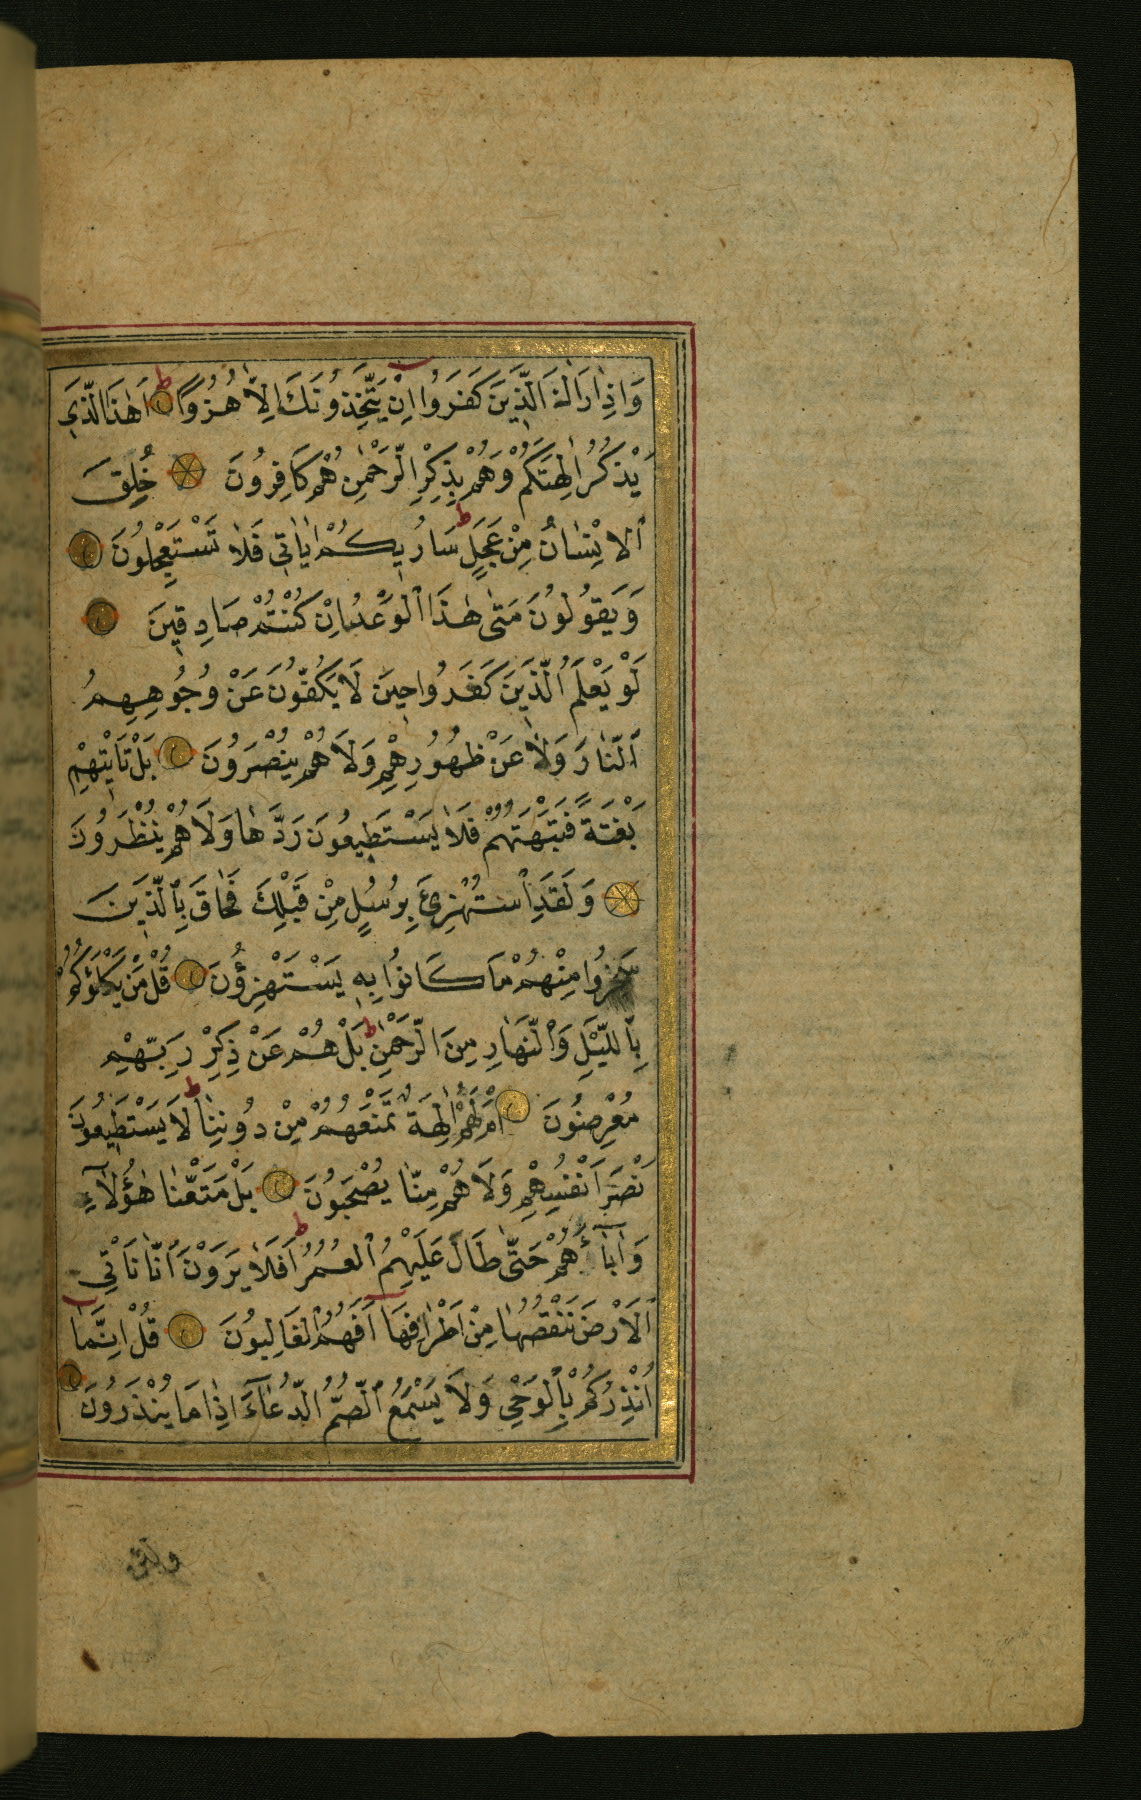 وَاِذَا رَاٰكَ الَّذِينَ كَفَرُوا اِنْ يَتَّخِذُونَكَ اِلَّا هُزُوًا ط اَهٰذَا الَّذِي
يَذْكُرُ اٰلِهَتَكُمْ وَهُمْ بِذِكْرِ الرَّحْمٰنِ هُمْ كَافِرُونَ خُلِقَ
الْاِنْسَانُ مِنْ عَجَلٍ ط سَاُرِيكُمْ اٰيَاتِي فَلَا تَسْتَعْجِلُونَ
وَيَقُولُونَ مَتٰى هٰذَا الْوَعْدُ اِنْ كُنْتُمْ صَادِقِينَ
لَوْ يَعْلَمُ الَّذِينَ كَفَرُوا حِينَ لَا يَكُفُّونَ عَنْ وُجُوهِهِمُ
النَّارَ وَلَا عَنْ ظُهُورِهِمْ وَلَا هُمْ يُنْصَرُونَ بَلْ تَاْتِيهِمْ
بَغْتَةً فَتَبْهَتُهُمْ فَلَا يَسْتَطِيعُونَ رَدَّهَا وَلَا هُمْ يُنْظَرُونَ
وَلَقَدِ اسْتُهْزِئَ بِرُسُلٍ مِنْ قَبْلِكَ فَحَاقَ بِالَّذِينَ
سَخِرُوا مِنْهُمْ مَا كَانُوا بِهِ يَسْتَهْزِؤُنَ قُلْ مَنْ يَكْلَؤُكُمْ
بِالَّليْلِ وَالنَّهَارِ مِنَ الرَّحْمٰنِ ط بَلْ هُمْ عَنْ ذِكْرِ رَبِّهِمْ
مُعْرِضُونَ اَمْ لَهُمْ اٰلِهَةٌ تَمْنَعُهُمْ مِنْ دُونِنَا ط لَا يَسْتَطِيعُونَ
نَصْرَ اَنْفُسِهِمْ وَلَا هُمْ مِنَّا يُصْحَبُونَ بَلْ مَتَّعْنَا هٰؤُلَاءِ
وَاٰبَاءَهُمْ حَتّٰى طَالَ عَلَيْهِمُ الْعُمُرُ ط اَفَلَا يَرَوْنَ اَنَّا نَاْتِي
الْاَرْضَ نَنْقُصُهَا مِنْ اَطْرَافِهَا اَفَهُمُ الْغَالِبُونَ قُلْ اِنَّمَا
اُنْذِرُكُمْ بِالْوَحْيِ وَلَا يَسْمَعُ الصُّمُّ الدُّعَاءَ اِذَا مَا يُنْذَرُونَ
ولئن